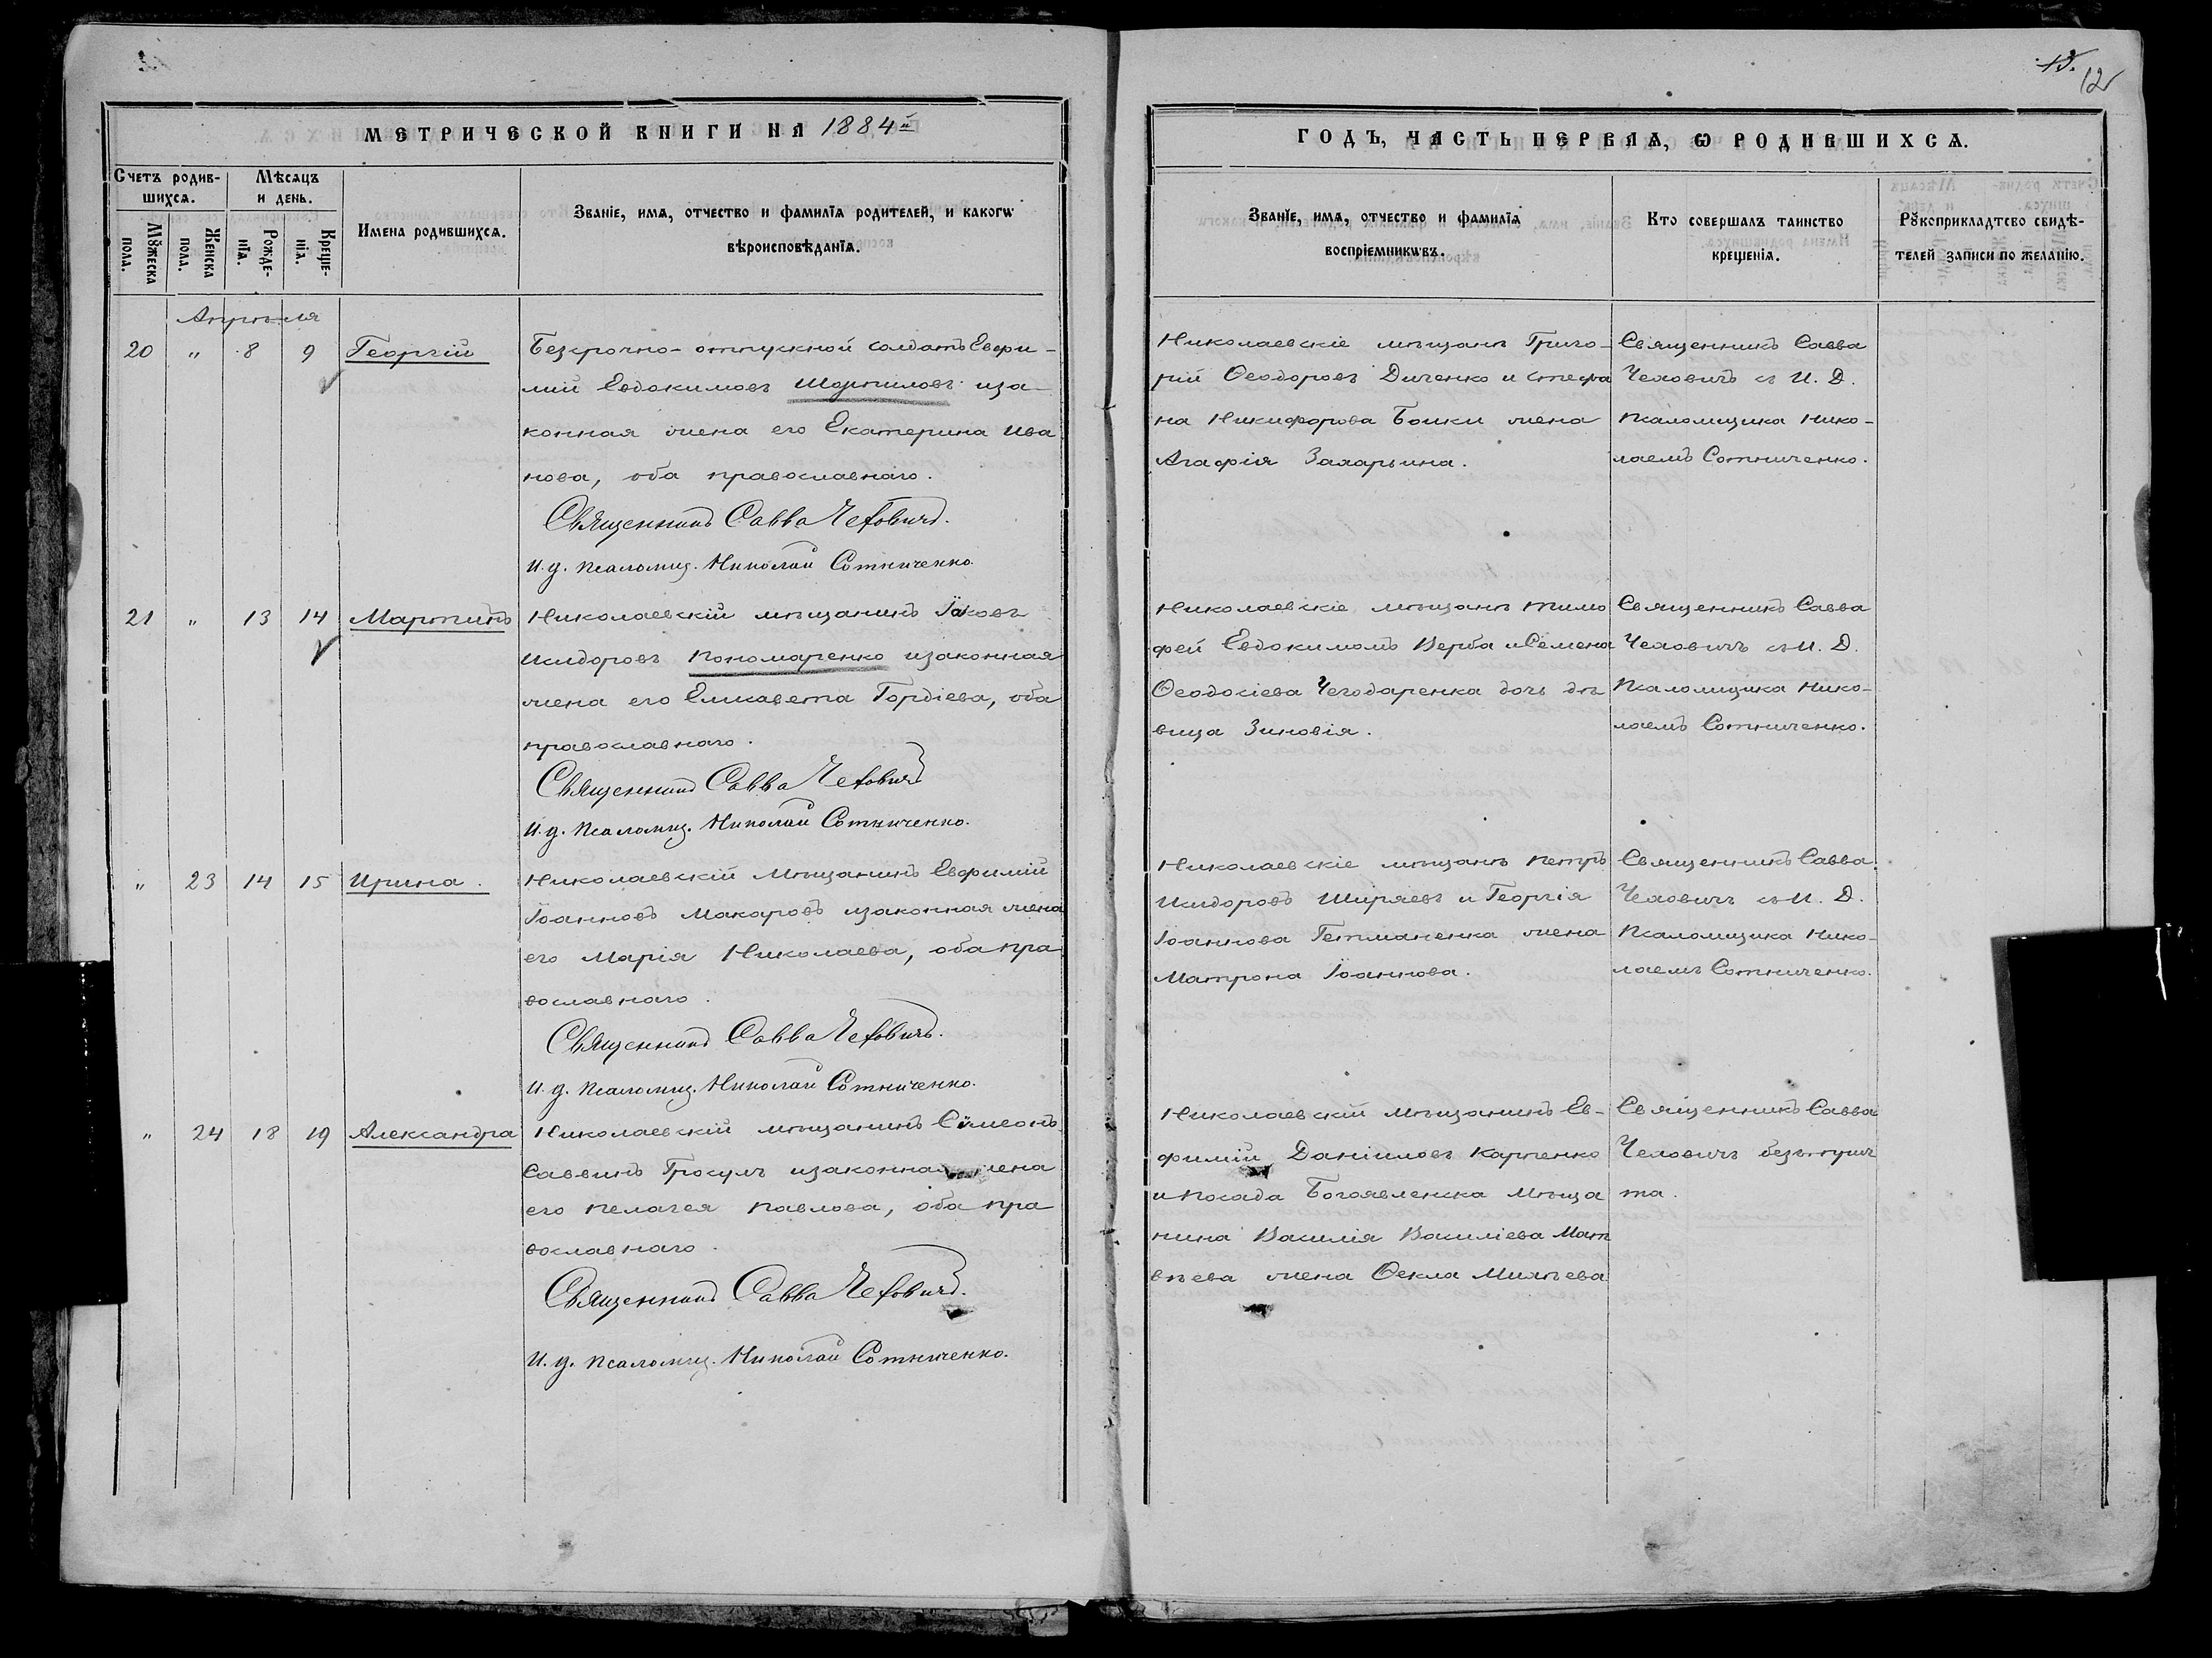 13.
12
МЕТРИЧЕСКОЙ КНИГИ НА 1884й
ГОДЪ, ЧАСТЬ ПЕРВАЯ, Ѡ РОДИВШИХСѦ.
Счетъ родив-
шихсѧ.
Мѣсяцъ
и день.
Мꙋжеска
пола.
Женска
пола.
Рожде-
нїѧ.
Креще-
нїѧ.
Имена родившихсѧ.
Званіе, имѧ, отчество и фамилїѧ родителей, и какогѡ
вѣроисповѣданїѧ.
Званїе, имѧ, отчество и фамилїѧ
воспрїемникѡвъ.
Кто совершалъ таинство
крещенїѧ.
Рꙋкоприкладтсво свидѣ-
телей записи по желанію.
Апрѣля
20 " 8 9 Георгій
Безсрочно-отпускной солдатъ Евфи-
мій Евдокимовъ Шорниловъ иза-
конная жена его Екатерина Ива
нова, оба православнаго.
Священникъ Савва Чеховичъ.
И. д. псаломщ. Николай Сотниченко.
Николаевскіе мѣщанъ Григо-
рій Ѳеодоровъ Диченко и Стефа
на Никифорова Бошки жена
Агафія Захарьина.
Священникъ Савва
Чеховичъ съ И. Д.
Псаломщика Нико-
лаемъ Сотниченко.
21 " 13 14 Мартинъ
Николаевскій мѣщанинъ Іаковъ
Исидоровъ Пономаренко изаконная
жена его Елисавета Гордіева, оба
православнаго.
Священникъ Савва Чеховичъ
И. д. Псаломщ. Николай Сотниченко.
Николаевскіе мѣщанъ Тимо
фей Евдокимовъ Верба и Семена
Ѳеодосіева Чегодаренка дочь дѣ
вица Зиновія.
Священникъ Савва
Чеховичъ съ И. Д.
Псаломщика Нико-
лаемъ Сотниченко.
" 23 14 15 Ирина.
Николаевскій Мѣщанинъ Евфимій
Іоанновъ Макаровъ изаконная жена
его Марія Николаева, оба пра
вославнаго.
Священникъ Савва Чеховичъ.
И. д. Псаломщ. Николай Сотниченко.
Николаевскіе мѣщанъ Петръ
Исидоровъ Ширяевъ и Георгія
Іоаннова Гетманенка жена
Матрона Іоаннова.
Священникъ Савва
Чеховичъ съ И. Д.
Псаломщика Нико-
лаемъ Сотниченко.
" 24 18 19 Александра
Николаевскій мѣщанинъ Сѵмеонъ
Саввинъ Гросулъ изаконная жена
его Пелагея Павлова, оба пра
вославнаго.
Священникъ Савва Чеховичъ.
И. д. Псаломщ. Николай Сотниченко.
Николаевскій мѣщанинъ Ев-
фимій Даніиловъ Карпенко
и посада Богоявленска Мѣща
нина Василія Василіева Мат
вѣева жена Ѳекла Михѣева
Священникъ Савва
Чеховичъ безъ прич
та.